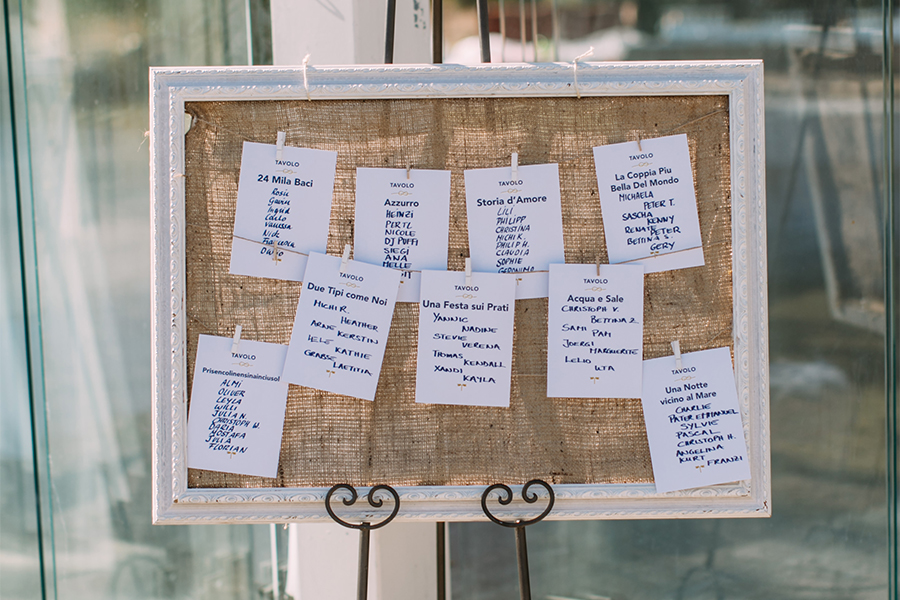 TAVOLO
24 Mila Baci
ROSII
Gavin
Ingrid
Vanessa
Nick
Francesca
David
TAVOLO
Azzurro
HEINZI
PER TL
NICOLE
DJ PUFFI
SIEGI
ANA
TAVOLO
Storia d'Amore
LILI
PHILIPP
CHRISTINA
MICHI K.
PHILIP H.
CLAUDIA
SOPHIE
GERONIMO
TAVOLO
La Coppia Piu
Bella Del Mondo
MICHAELA
PETER T.
SASCHA
KENNY
RENATE
PETER
BETTINA S
GERY
TAVOLO
Due Tipi come Noi
MICHI R.
HEATHER
ARNE KERSTIN
LELE KATHIE
GRABBE
LAETITIA
TAVOLO
Una Festa sui Prati
YANNIC
NADINE
STEVIE
VERENA
THOMAS
KENDALL
XANDI
KAYLA
TAVOLO
Acqua e Sale
CHRISTOPH V.
BETTINA Z
SAMI PAM
JOERGI
MARGUERITE
LELIO
UTA
TAVOLO
Prisencolinensinainciusol
ALMI
OLIVER
LEYLA
WILLI
JULIAN
CHRISTOPH W.
DARIA
MOSTAFA
JULIA
FLORIAN
TAVOLO
Una Notte
vicino al Mare
CHARLIE
PATER EMMANUEL
SYLVIE
PASCAL
CHRISTOPH H.
ANGELINA
KURT FRANZI